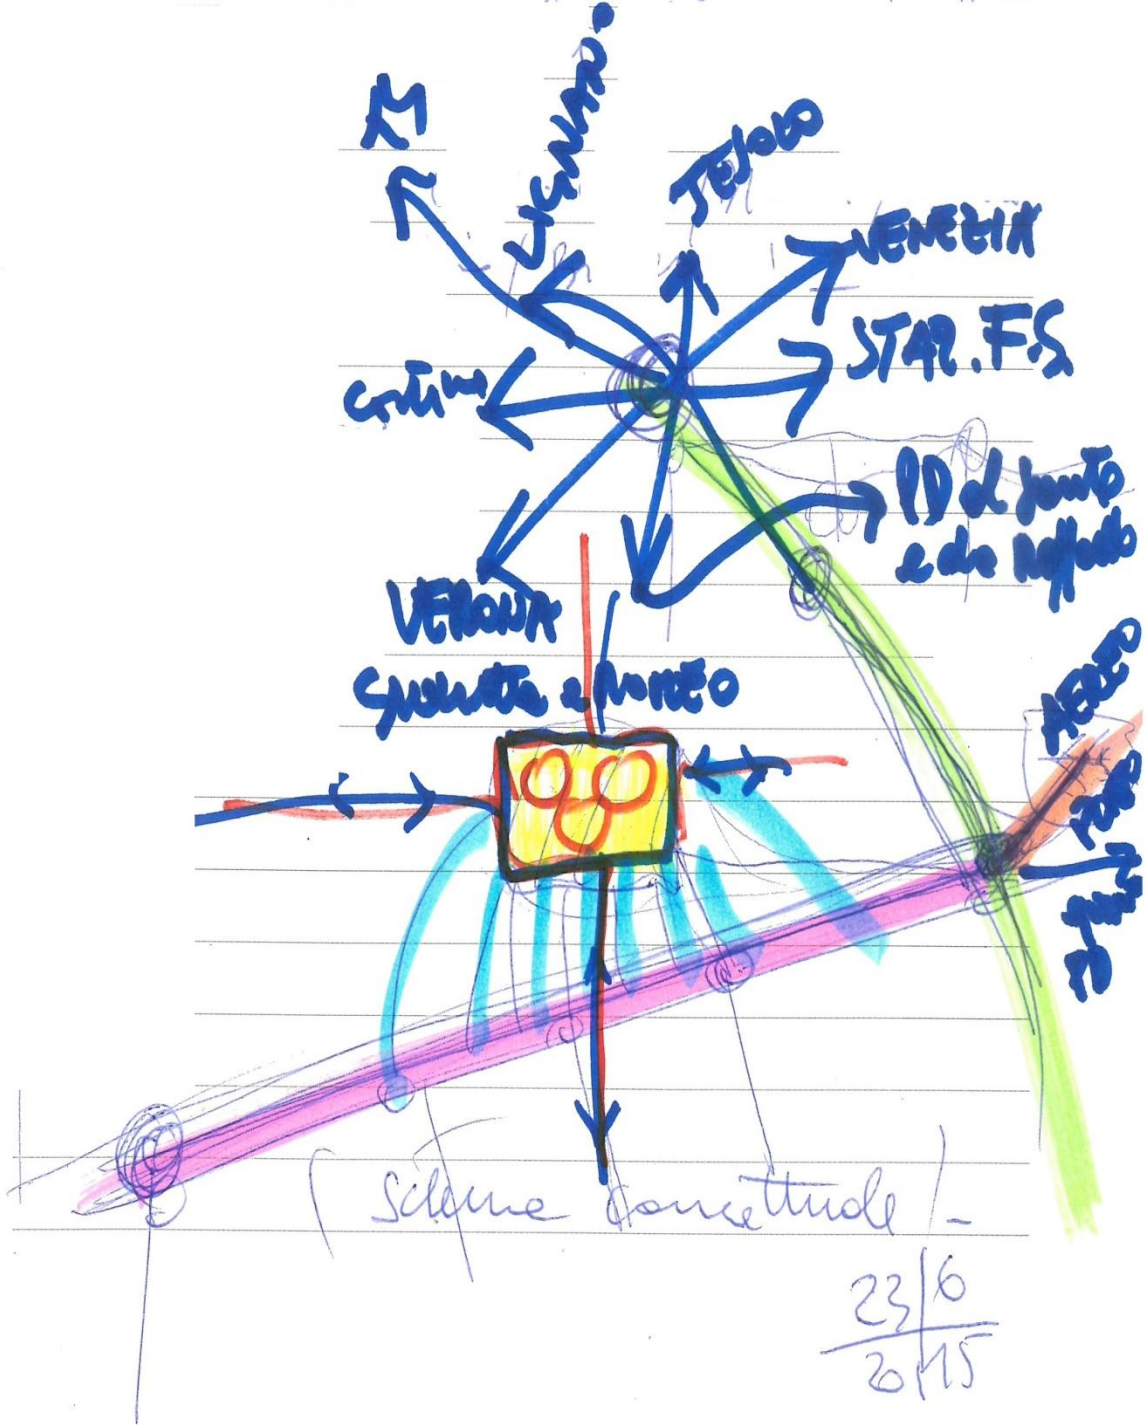 LIGNANO
JESOLO
VENEZIA
STAZ. F.S
Cortina
PD di Santo
VERONA
Giulietta e ROMEO
AEREO
PORTO
(Schema Concettuale) -
23/6
2015